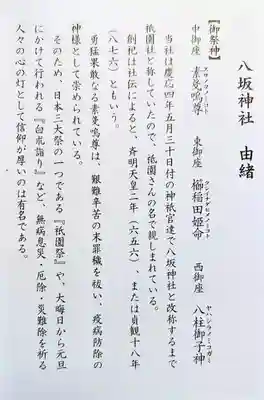 八坂神社 由緒
【御祭神】
中御座 素戔嗚尊 東御座 櫛稲田姫命 西御座 八柱御子神
スサノヲノミコト クシイナダヒメノミコト ヤハシラノミコガミ
当社は慶応四年五月三十日付の神祇官達で八坂神社と改称するまで
祇園社と称していたので、祇園さんの名で親しまれている。
創祀は社伝によると、斉明天皇二年(六五六)、または貞観十八年
(八七六)ともいう。
勇猛果敢なる素戔嗚尊は、艱難辛苦の末罪穢を祓い、疫病防除の
神様として崇められている。
そのため、日本三大祭の一つである『祇園祭』や、大晦日から元旦
にかけて行われる『白朮詣り』など、無病息災・厄除・災難除を祈る
人々の心の灯として信仰が厚いのは有名である。